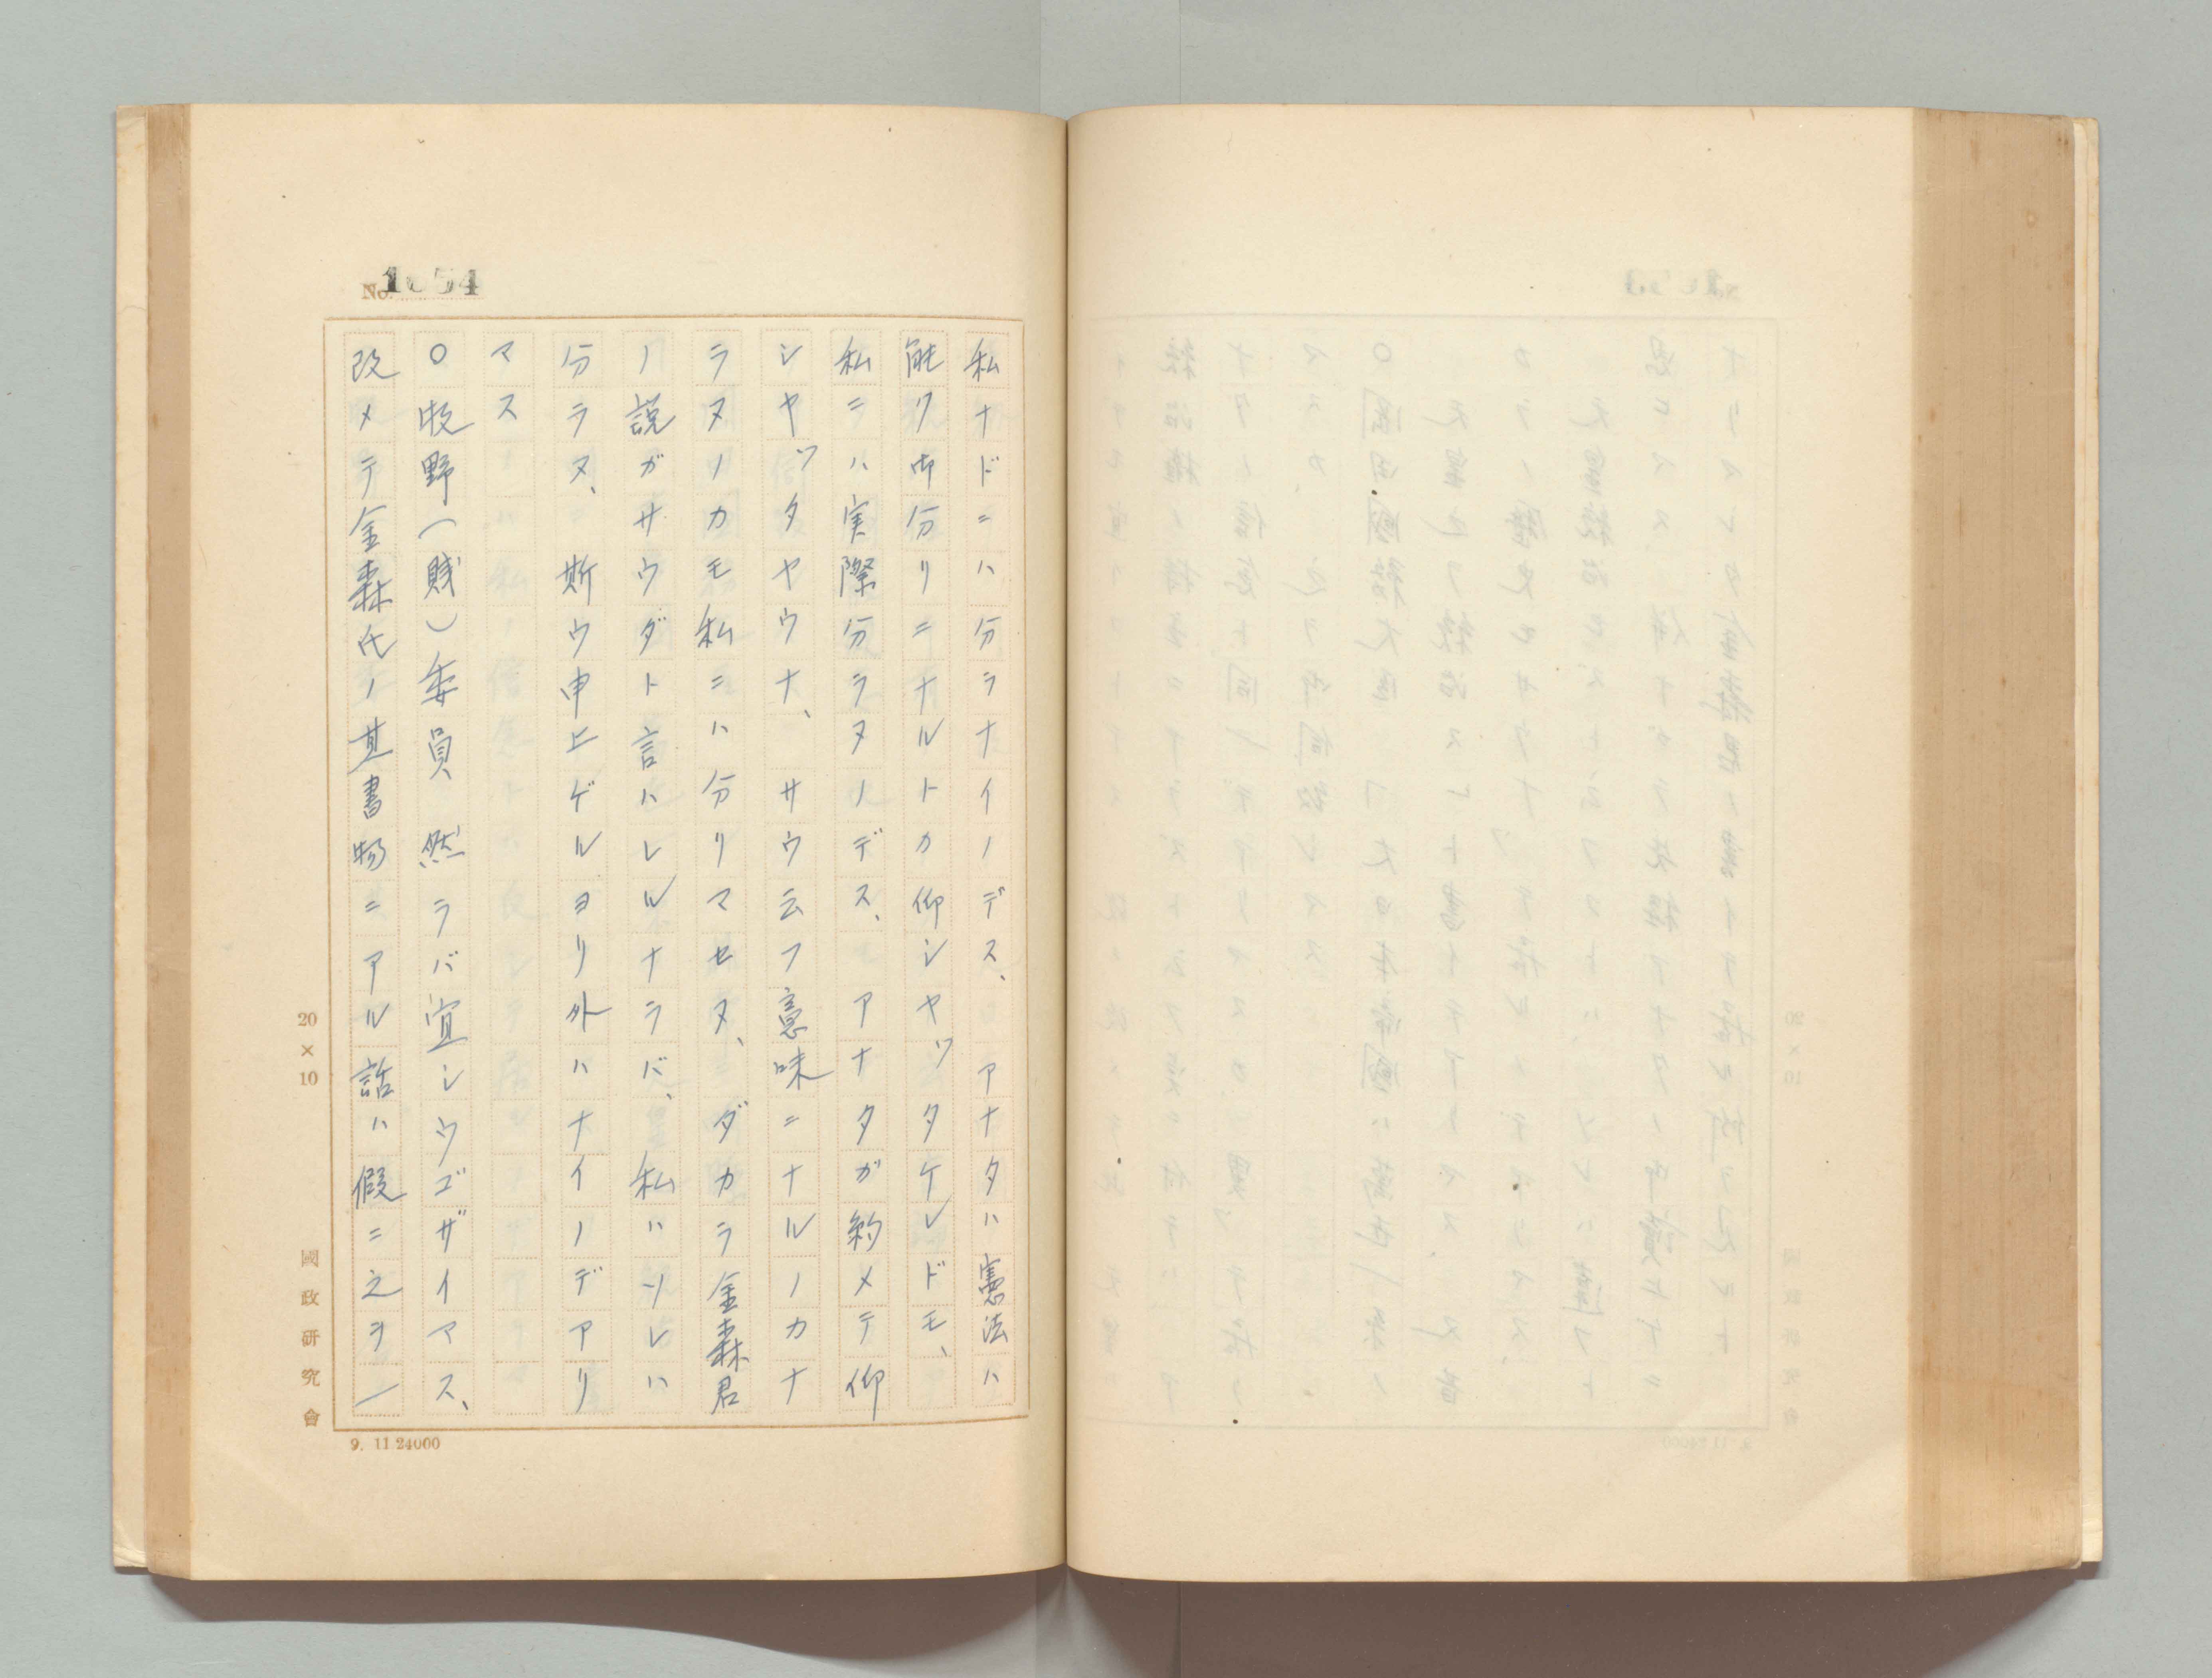 No. 1054
私ナドニハ分ラナイノデス、　アナタハ憲法ハ
能ク御分リニナルトカ仰シヤツタケレドモ、
私ニハ実際分ラヌノデス、　アナタガ約メテ仰
シヤツタヤウナ、　サウ云フ意味ニナルノカナ
ラヌノカモ私ニハ分リマセヌ、　ダカラ金森君
ノ説ガサウダト言ハレルナラバ、私ハソレハ
分ラヌ、　斯ウ申上ゲルヨリ外ハナイノデアリ
マス
○牧野（賤）委員　然ラバ宜シウゴザイマス、
改メテ金森氏ノ其書物ニアル話ハ假ニ之ヲ一
20×10
國政研究會
9. 11 24000